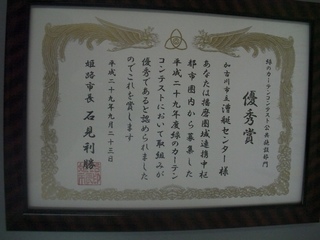 緑のカーテンコンテスト公共施設部門
優秀賞
加古川市立漕艇センター様
あなたは播磨圏域連携中枢
都市圏内から募集した
平成二十九年度緑のカーテン
コンテストにおいて取組みが
優秀であると認められました
のでこれを賞します
平成二十九年九月二十三日
姫路市長 石見利勝